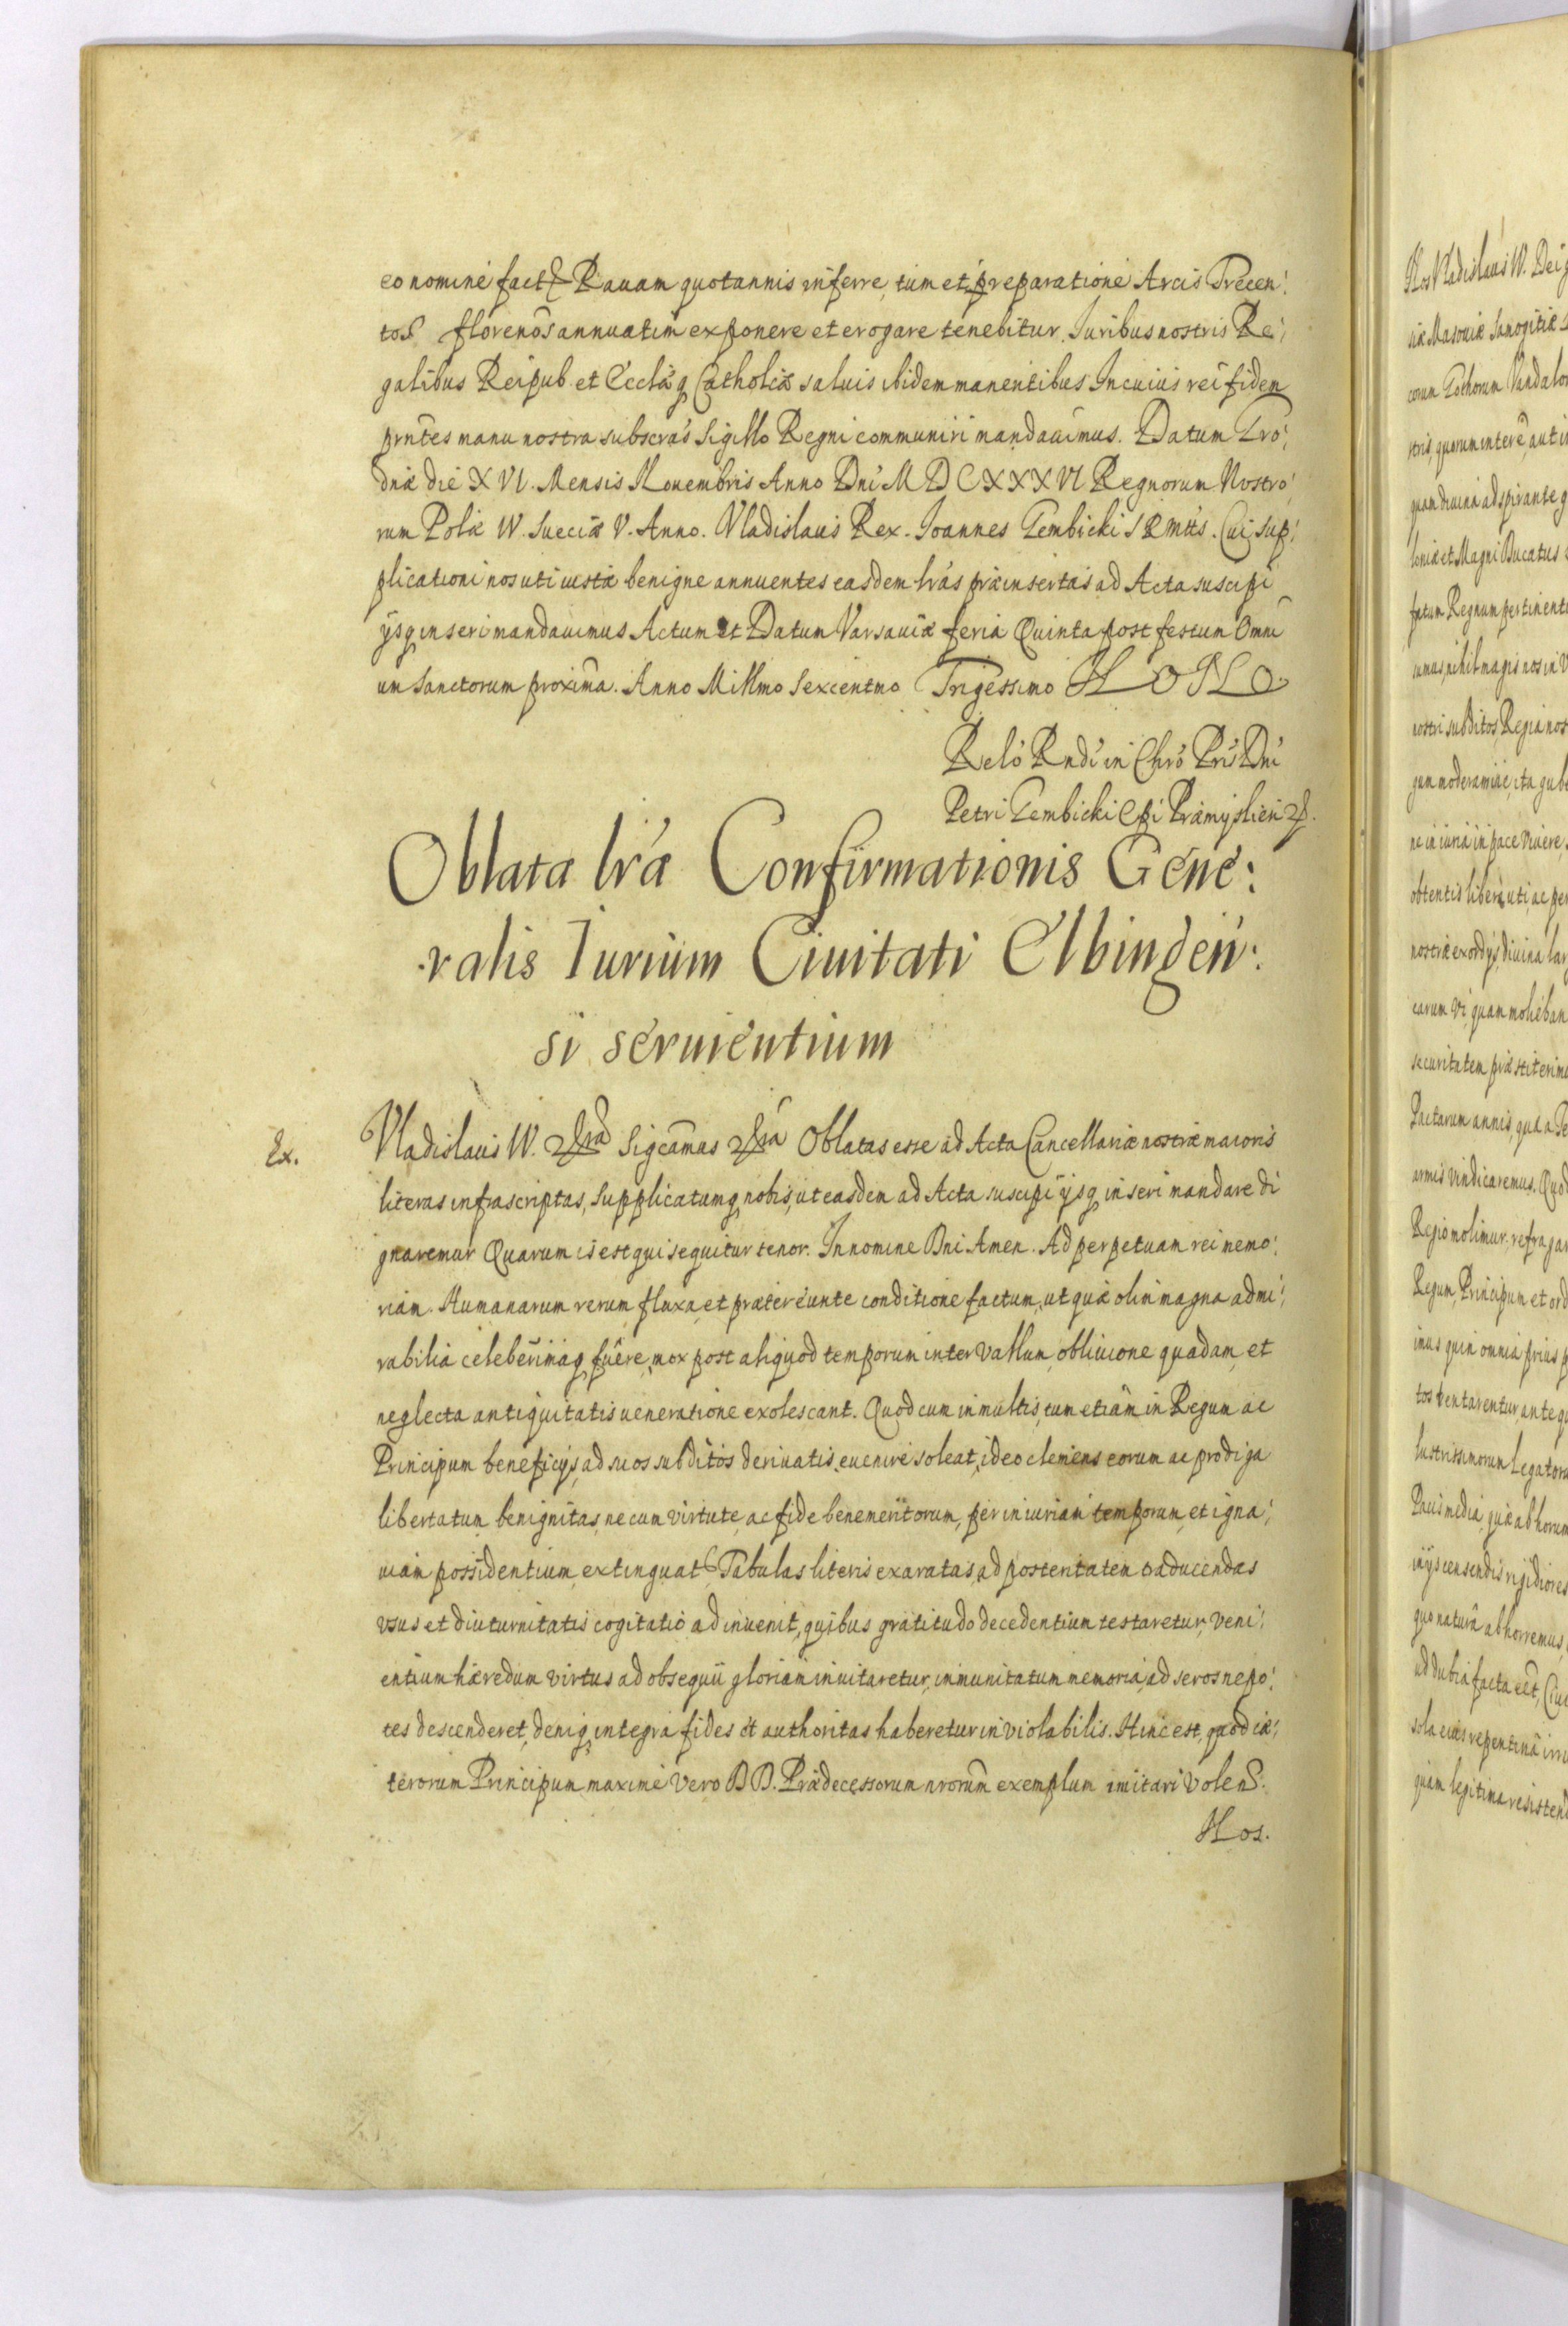 eo nomine fact Rauam quotannis inferre, tum et preparatione Arcis Trecen:
tos florenos annuatim exponere et erogare tenebitur. Iuribus nostris Re:
galibus Reipub. et Ecclæq Catholicæ saluis ibidem manentibus. In cuius rei fidem
prntes manu nostra subscras Sigillo Regni communiri mandauimus. Datum Gro:
dnæ die XVI. Mensis Nouembris Anno Dni MDCXXXVI Regnorum Nostro:
rum Polæ IV. Sueciæ V. Anno. Vladislaus Rex. Ioannes Gembicki SRMtis. Cui sup:
plicationi nos uti iustæ benigne annuentes easdem lras præinsertas ad Acta suscipi
ijsq inseri mandauimus Actum et Datum Varsauiæ feria Quinta post festum Omni
um Sanctorum proxima. Anno Millmo Sexcentmo Trigessimo NONO.
Relo Rndi in Chro Pris Dni
Petri Gembicki Epi Præmyslien
Oblata lræ Confirmationis Gene:
ralis Iurium Ciuitati Elbingen:
si seruientium
Ex.
Vladislaus IV. Sigcamus Oblatas esse ad Acta Cancellariæ nostræ maioris
literas infrascriptas, Supplicatumq nobis, ut easdem ad Acta suscipi ijsq inseri mandare di
gnaremur Quarum is est qui sequitur tenor. In nomine Dni Amen. Ad perpetuam rei memo:
riam. Humanarum rerum fluxa, et prætereunte conditione factum, ut quæ olim magna admi:
rabilia celeberimaq fuere, mox post aliquod temporum intervallum, obliuione quadam, et
neglecta antiquitatis ueneratione exolescant. Quod cum in multis, tum etiam in Regum ac
Principum beneficijs, ad suos subditos deriuatis, euenire soleat, ideo clemens eorum ac prodiga
libertatum benignitas, ne cum virtute, ac fide benemeritorum, per iniuriam temporum, et igna:
uiam possidentium, extinguat, Tabulas literis exaratas, ad posteritatem traducendas
vsus et diuturnitatis cogitatio adinuenit, quibus gratitudo decedentium testaretur, veni:
entium hæredum virtus ad obsequii gloriam inuitaretur, immunitatum memoria, ad seros nepo:
tes descenderet, deniq integra fides et authoritas haberetur inviolabilis. Hinc est, quod cæ:
terorum Principum maxime vero DD. Prædecessorum nrorum exemplum imitari volens.
Nos.
Nos Vladislaus IV. Dei
siæ Masouiæ Samogitiæ
corum Gothorum Vandalor
stris, quorum interē, aut in
quam diuina adspirante g
loniæ et Magni Ducatus
fatum Regnum pertinent
sumus, nihil magis nos in
nostri subditos, Regia nos
gum moderamine, ita gub
ne iniuria in pace viuere,
obtentis libere uti, ac per
nostræ exordijs, diuina lar
earum vi, quam molieban
securitatem præstiterimus
Pactarum annis, qua a
armis vindicaremus. Quod
Regio molimur. refragar
Regum, Principum et ord
imus quin omnia prius p
tos tentarentur, ante q
lustrissimorum Legator
Pacis media, quæ ab horum
in ijs censendis rigidiores
quo natura abhorremus,
ad dubia facta est, Ciui
sola eius repentina irru
quam legitima resistend